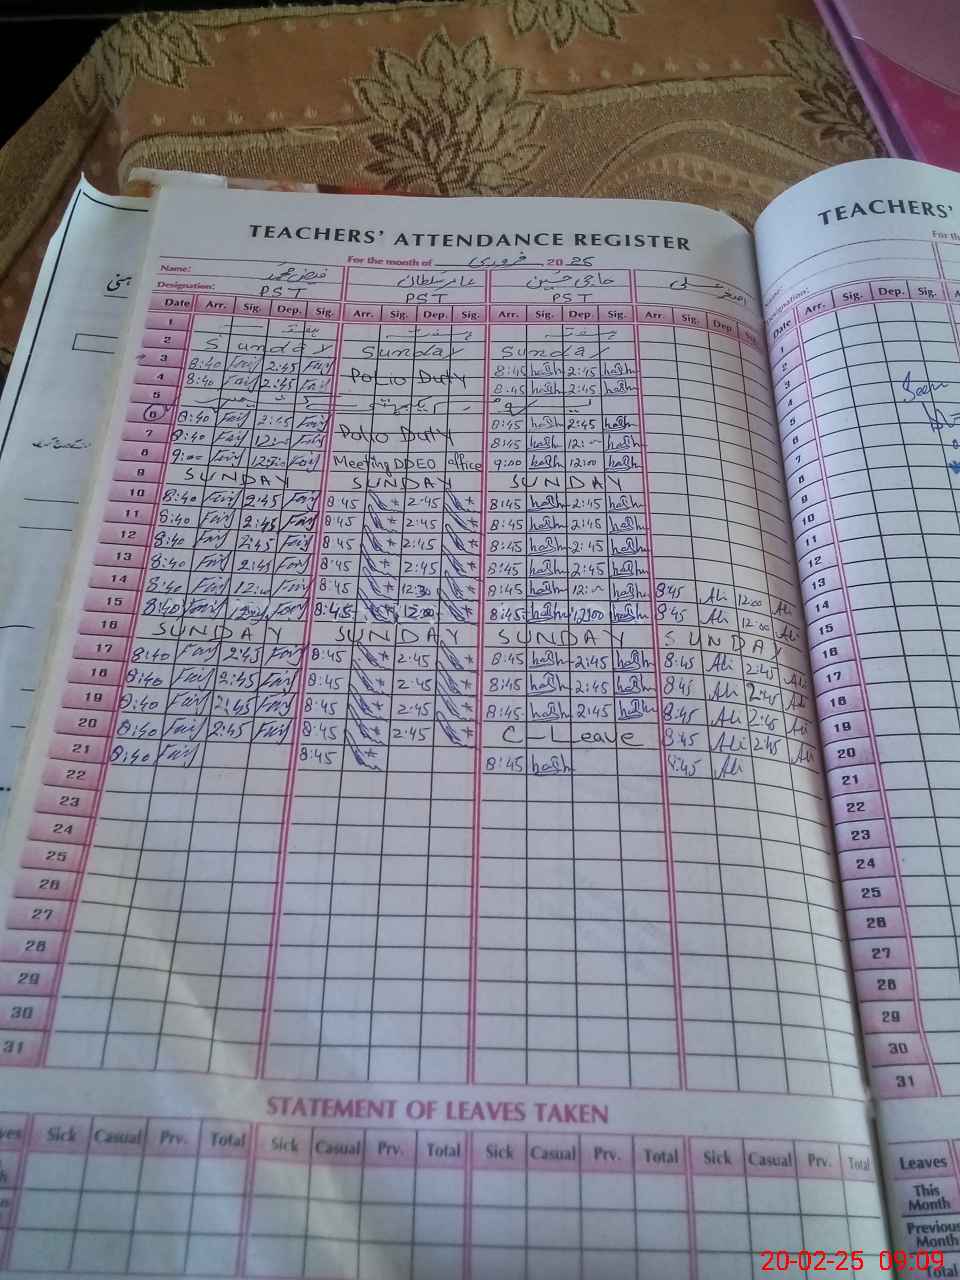 TEACHERS' ATTENDANCE REGISTER
For the month of فروری 2025
Name: فیض محمد عامر سلطان حاجی حسین اصغر علی
Designation: PST PST PST
Date Arr. Sig. Dep. Sig. Arr. Sig. Dep. Sig. Arr. Sig. Dep. Sig. Arr. Sig. Dep Sig.
1
2 Sunday Sunday Sunday
3 8:40 Faiz 2:45 Faiz Polio Duty 8:45 hash 2:45 hash
4 8:40 Faiz 2:45 Faiz 8:45 hash 2:45 hash
5
6 8:40 Faiz 2:45 Faiz Polio Duty 8:45 hash 2:45 hash
7 8:40 Faiz 12:00 Faiz 8:45 hash 12:00 hash
8 9:00 Faiz 12:30 Faiz Meeting DDEO office 9:00 hash 12:00 hash
9 SUNDAY SUNDAY SUNDAY
10 8:40 Faiz 2:45 Faiz 8:45 2:45 8:45 hash 2:45 hash
11 8:40 Faiz 2:45 Faiz 8:45 2:45 8:45 hash 2:45 hash
12 8:40 Faiz 2:45 Faiz 8:45 2:45 8:45 hash 2:45 hash
13 8:40 Faiz 2:45 Faiz 8:45 2:45 8:45 hash 2:45 hash
14 8:40 Faiz 12:00 Faiz 8:45 12:30 8:45 hash 12:00 hash 8:45 Ali 12:00 Ali
15 8:40 Faiz 12:00 Faiz 8:45 12:00 8:45 hash 12:00 hash 8:45 Ali 12:00 Ali
16 SUNDAY SUNDAY SUNDAY SUNDAY
17 8:40 Faiz 2:45 Faiz 8:45 2:45 8:45 hash 2:45 hash 8:45 Ali 2:45 Ali
18 8:40 Faiz 2:45 Faiz 8:45 2:45 8:45 hash 2:45 hash 8:45 Ali 2:45 Ali
19 8:40 Faiz 2:45 Faiz 8:45 2:45 8:45 hash 2:45 hash 8:45 Ali 2:45 Ali
20 8:40 Faiz 2:45 Faiz 8:45 2:45 C-Leave 8:45 Ali 2:45 Ali
21 8:40 Faiz 8:45 8:45 hash 8:45 Ali
22
23
24
25
26
27
28
29
30
31
STATEMENT OF LEAVES TAKEN
Sick Casual Prv. Total Sick Casual Prv. Total Sick Casual Prv. Total Sick Casual Prv. Total
TEACHERS'
Designation:
Date Arr. Sig. Dep. Sig. A
1
2
3
4
5
6
7
8
9
10
11
12
13
14
15
16
17
18
19
20
21
22
23
24
25
26
27
28
29
30
31
Leaves
This Month
Previous Month
Total
20-02-25 09:09